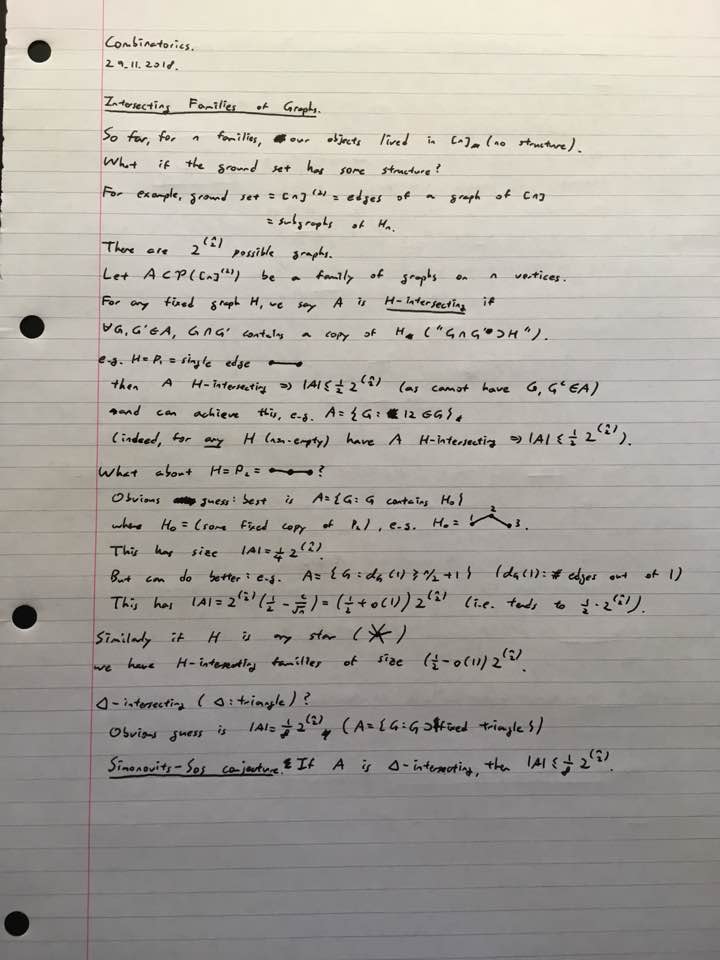 Combinatorics.
29.11.2018.
Intersecting Families of Graphs.
So far, for n families, our objects lived in [n] (no structure).
What if the ground set has some structure?
For example, ground set = [n]⁽²⁾ = edges of a graph of [n]
= subgraphs of Hₙ.
There are 2^(n 2) possible graphs.
Let A ⊂ P([n]⁽²⁾) be a family of graphs on n vertices.
For any fixed graph H, we say A is H-intersecting if
∀G, G' ∈ A, G ∩ G' contains a copy of H. ("G ∩ G' ⊃ H").
e.g. H = P₁ = single edge
then A H-intersecting ⇒ |A| ≤ ½ 2^(n 2) (as cannot have G, Gᶜ ∈ A)
and can achieve this, e.g. A = {G: 12 ∈ G}.
(indeed, for any H (non-empty) have A H-intersecting ⇒ |A| ≤ ½ 2^(n 2)).
What about H = P₂ = ?
Obvious guess: best is A = {G: G contains H₀}
where H₀ = (some fixed copy of P₂), e.g. H₀ = 1 2 3.
This has size |A| = ¼ 2^(n 2).
But can do better: e.g. A = {G: d_G(1) ≥ n/2 + 1} (d_G(1): # edges out of 1)
This has |A| = 2^(n 2) (½ - c/√n) = (½ + o(1)) 2^(n 2) (i.e. tends to ½ · 2^(n 2)).
Similarly if H is any star ( )
we have H-intersecting families of size (½ - o(1)) 2^(n 2).
Δ-intersecting (Δ: triangle)?
Obvious guess is |A| = ⅛ 2^(n 2). (A = {G: G ⊃ fixed triangle})
Simonovits-Sos conjecture: If A is Δ-intersecting, then |A| ≤ ⅛ 2^(n 2).